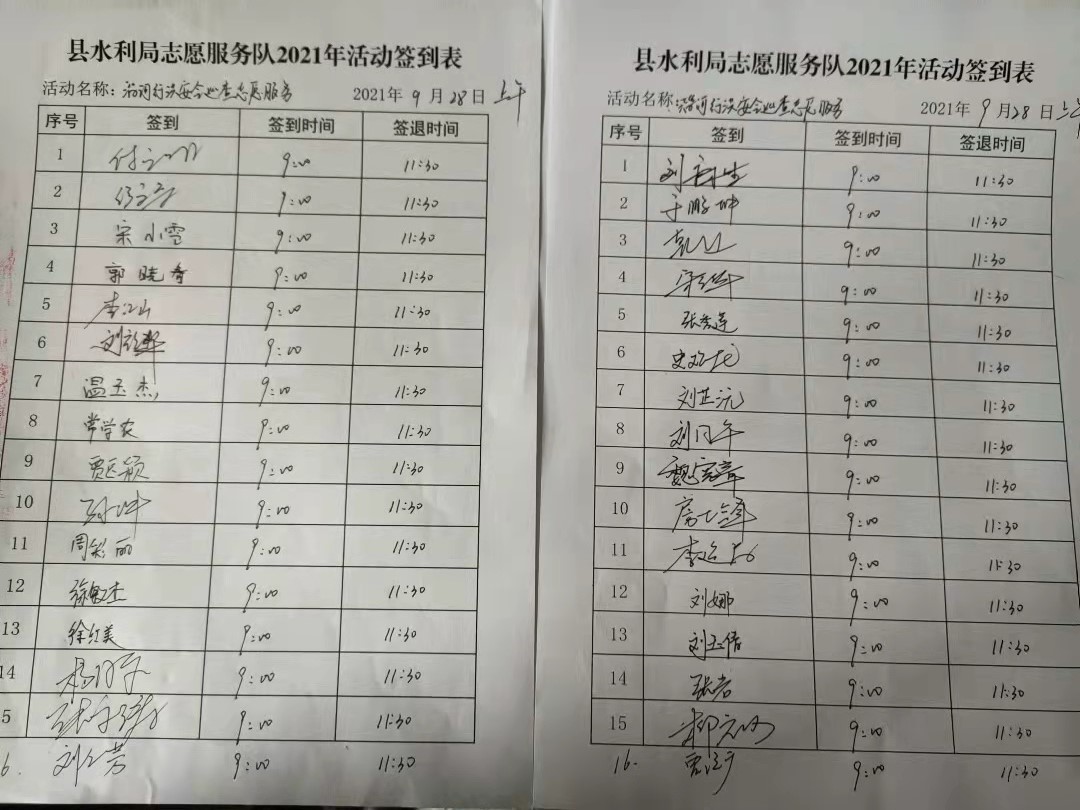 县水利局志愿服务队2021年活动签到表
活动名称：沿河行洪安全巡查志愿服务 2021年9月28日上午
序号 签到 签到时间 签退时间
1 9:00 11:30
2 9:00 11:30
3 宋小雪 9:00 11:30
4 郭晓春 9:00 11:30
5 李江山 9:00 11:30
6 9:00 11:30
7 温玉杰 9:00 11:30
8 常学农 9:00 11:30
9 贾颖 9:00 11:30
10 9:00 11:30
11 周彩丽 9:00 11:30
12 徐杰 9:00 11:30
13 徐红美 9:00 11:30
14 9:00 11:30
5 9:00 11:30
6. 刘芳 9:00 11:30
县水利局志愿服务队2021年活动签到表
活动名称：沿河行洪安全巡查志愿服务 2021年9月28日上午
序号 签到 签到时间 签退时间
1 刘 9:00 11:30
2 于鹏坤 9:00 11:30
3 9:00 11:30
4 9:00 11:30
5 张秀莲 9:00 11:30
6 9:00 11:30
7 刘芷沅 9:00 11:30
8 刘同午 9:00 11:30
9 魏宝章 9:00 11:30
10 9:00 11:30
11 李 9:00 11:30
12 刘娜 9:00 11:30
13 刘玉倩 9:00 11:30
14 张岩 9:00 11:30
15 柳 9:00 11:30
16. 9:00 11:30